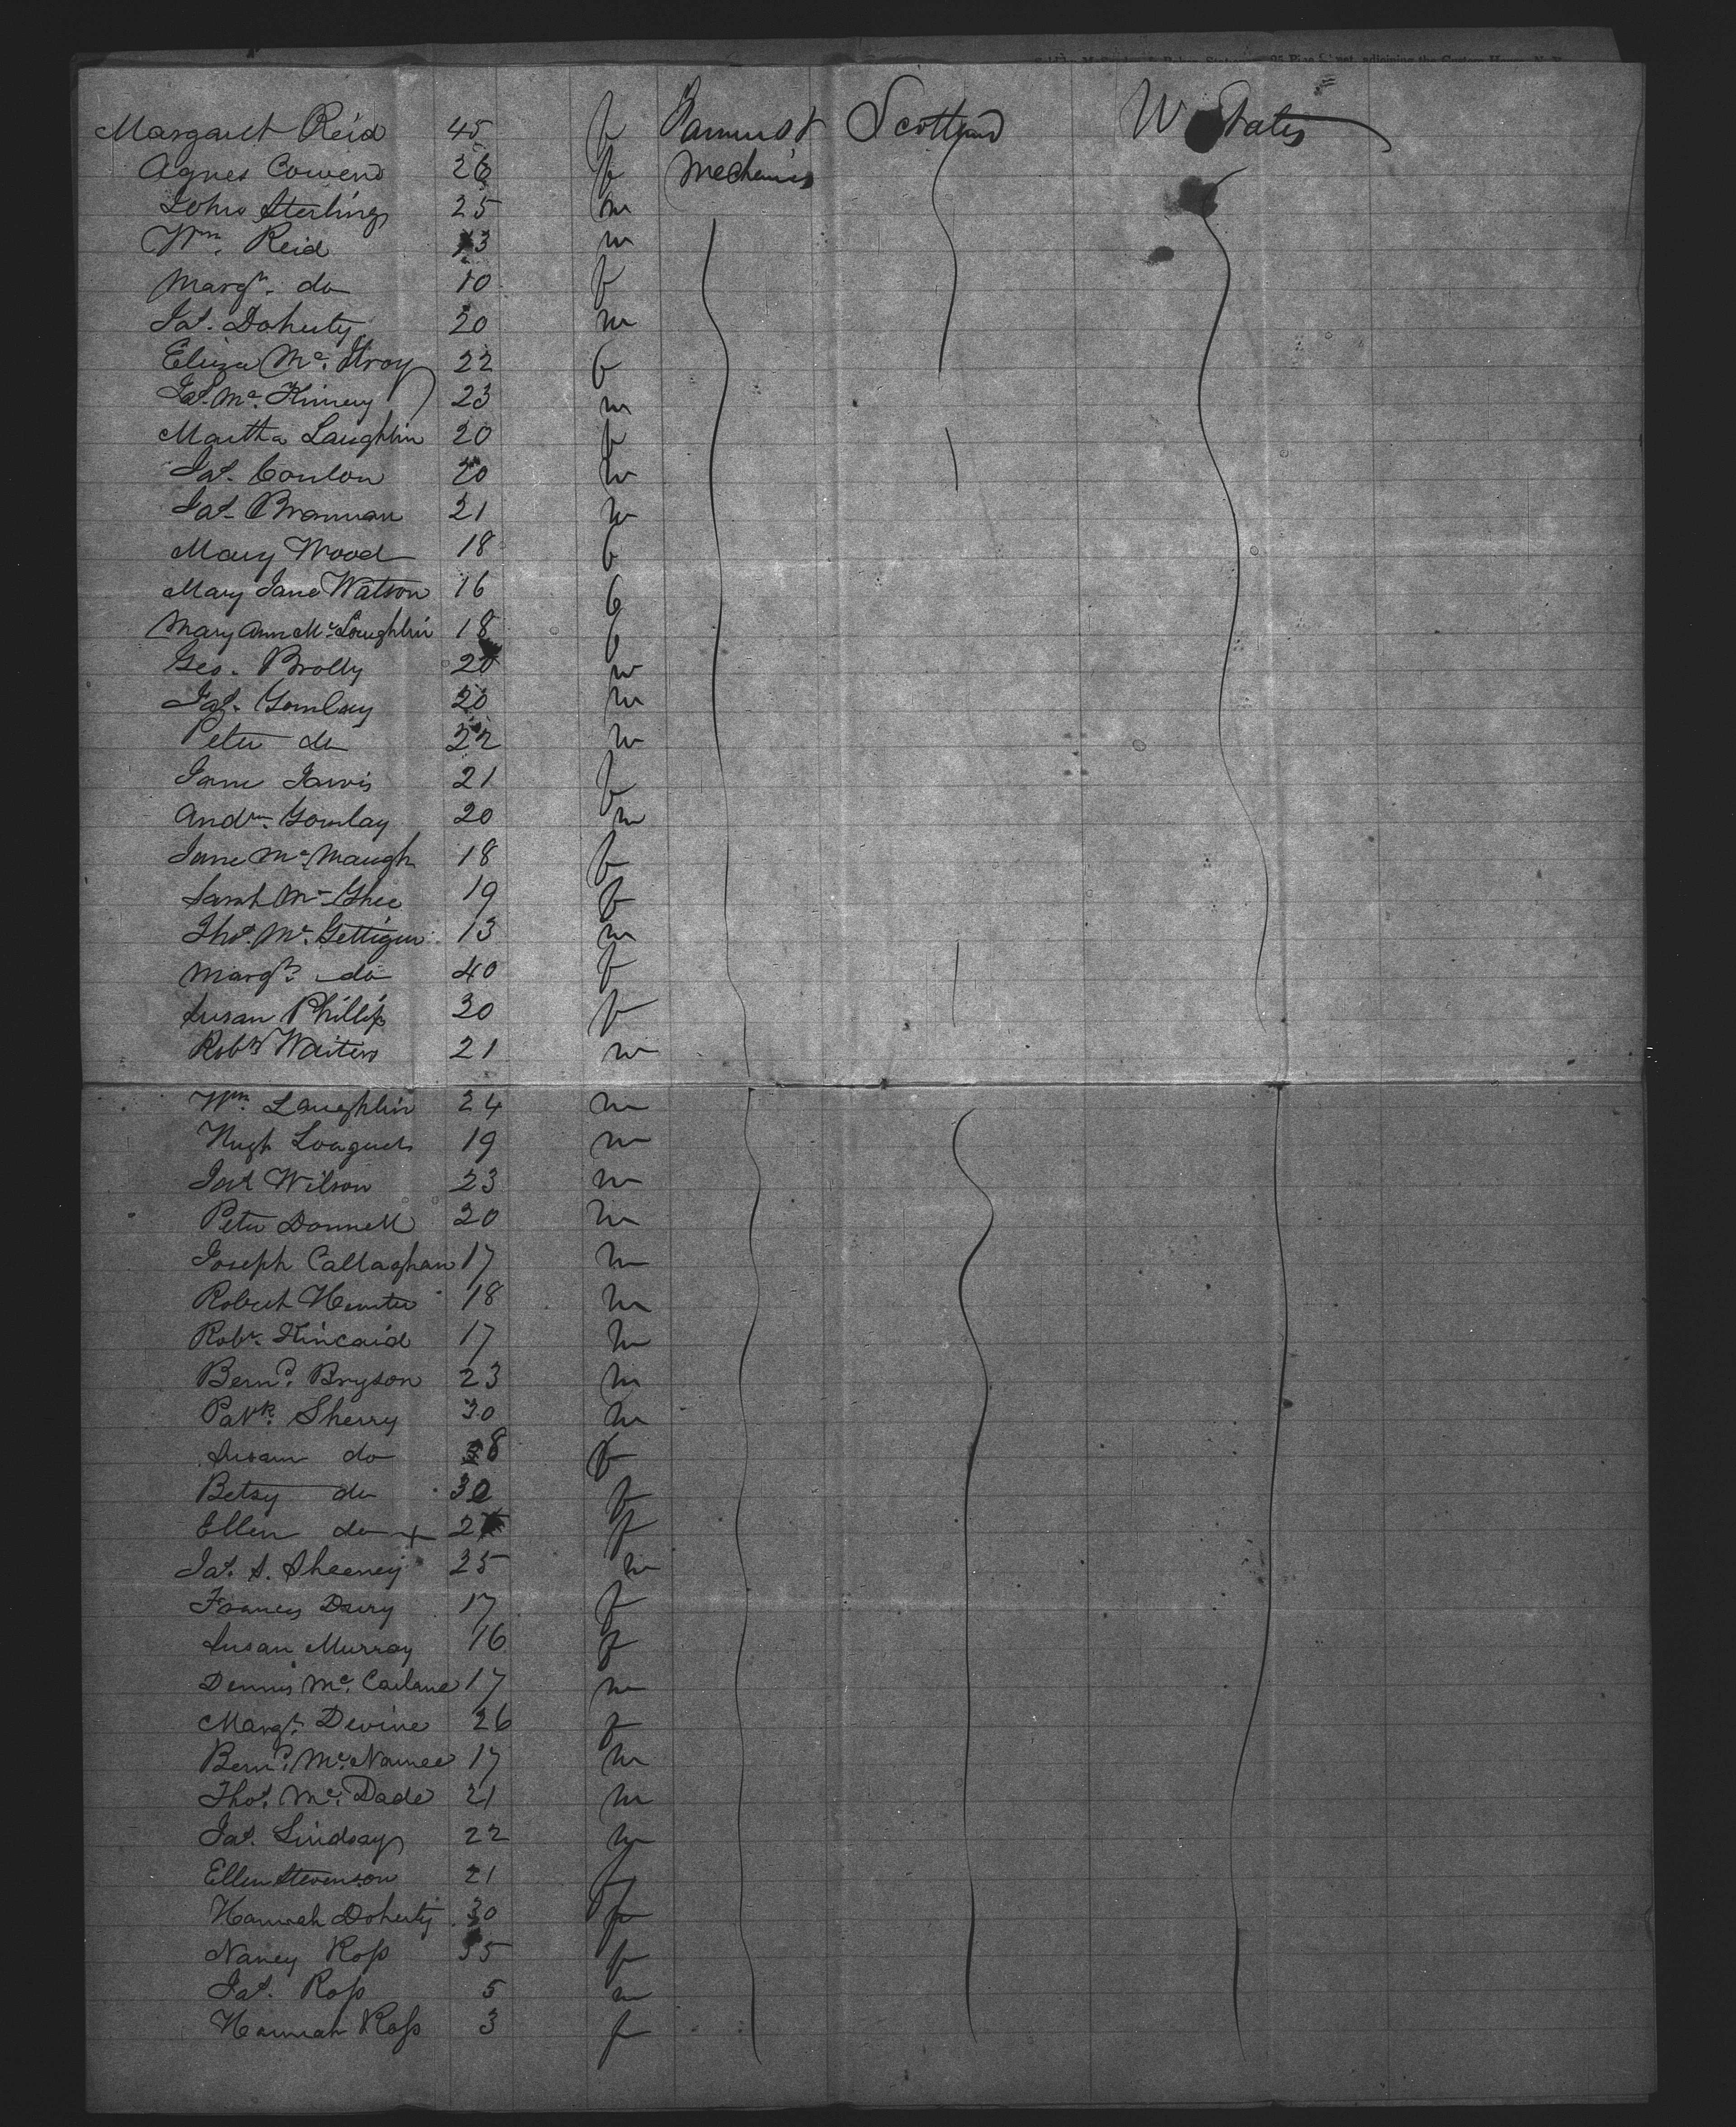 Margaret Reid 45 f Farmers & Scotland U States
Agnes Cowend 26 f Mechanics
John Sterling 25 m
Wm. Reid 13 m
Margt. do 10 f
Jas. Doherty 20 m
Eliza Mc. Ilroy 22 f
Jas. Mc. Kinney 23 m
Martha Laughlin 20 f
Jas. Conlon 20 m
Jas. Brannan 21 m
Mary Wood 18 f
Mary Jane Watson 16 f
Mary Ann Mc Loughlin 18 f
Geo. Brolly 20 m
Jas. Gomlay 20 m
Peter do 22 m
Jane Jarvis 21 f
Andw. Gomlay 20 m
Jane Mc Maugh 18 f
Sarah Mc Ghee 19 f
Thos. Mc. Gettigen 13 m
Margt. do 40 f
Susan Phillip 30 f
Robt. Waters 21 m
Wm. Laughlin 24 m
Hugh 19 m
Jas Wilson 23 m
Peter Donnell 20 m
Joseph Callaghan 17 m
Robert Hunter 18 m
Robt. Kincaid 17 m
Bernd. Bryson 23 m
Patk. Sherry 30 m
Susan do 38 f
Betsy do 30 f
Ellen do + f
Jas. S. Sheeney 25 m
Frances Dury 17 f
Susan Murray 16 f
Dennis Mc. Carlane 17 m
Margt. Devine 26 f
Bernd. Mc. Namee 17 m
Thos. Mc. Dade 21 m
Jas. Lindsay 22 m
Ellen Stevenson 21 f
Hannah Doherty 30 f
Nancy Ross 35 f
Jas. Ross 5 m
Hannah Ross 3 f